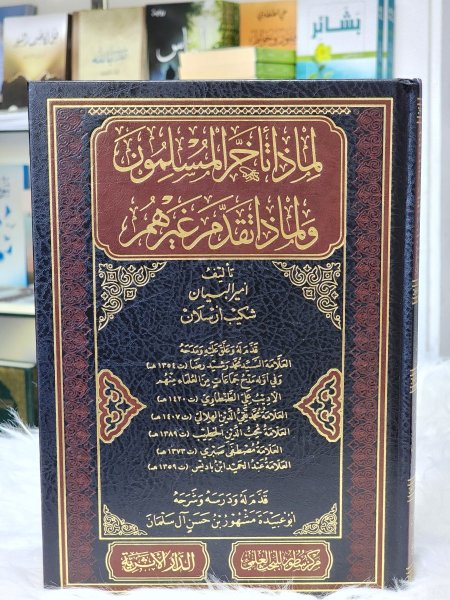 بشائر
لماذا تأخر المسلمون
ولماذا تقدم غيرهم
تأليف
أمير البيان
شكيب أرسلان
قدم له وعلق عليه ومدحه
العلامة السيد محمد رشيد رضا (ت ١٣٥٤ هـ)
وفي أوله مدح جماعات من العلماء منهم
الأديب علي الطنطاوي (ت ١٤٢٠ هـ)
العلامة محمد تقي الدين الهلالي (ت ١٤٠٧ هـ)
العلامة محب الدين الخطيب (ت ١٣٨٩ هـ)
العلامة مصطفى صبري (ت ١٣٧٣ هـ)
العلامة عبد الحميد ابن باديس (ت ١٣٥٩ هـ)
قدم له ودرسه وشرحه
أبو عبيدة مشهور بن حسن آل سلمان
الدار الأثرية
مركز سطور للبحث العلمي